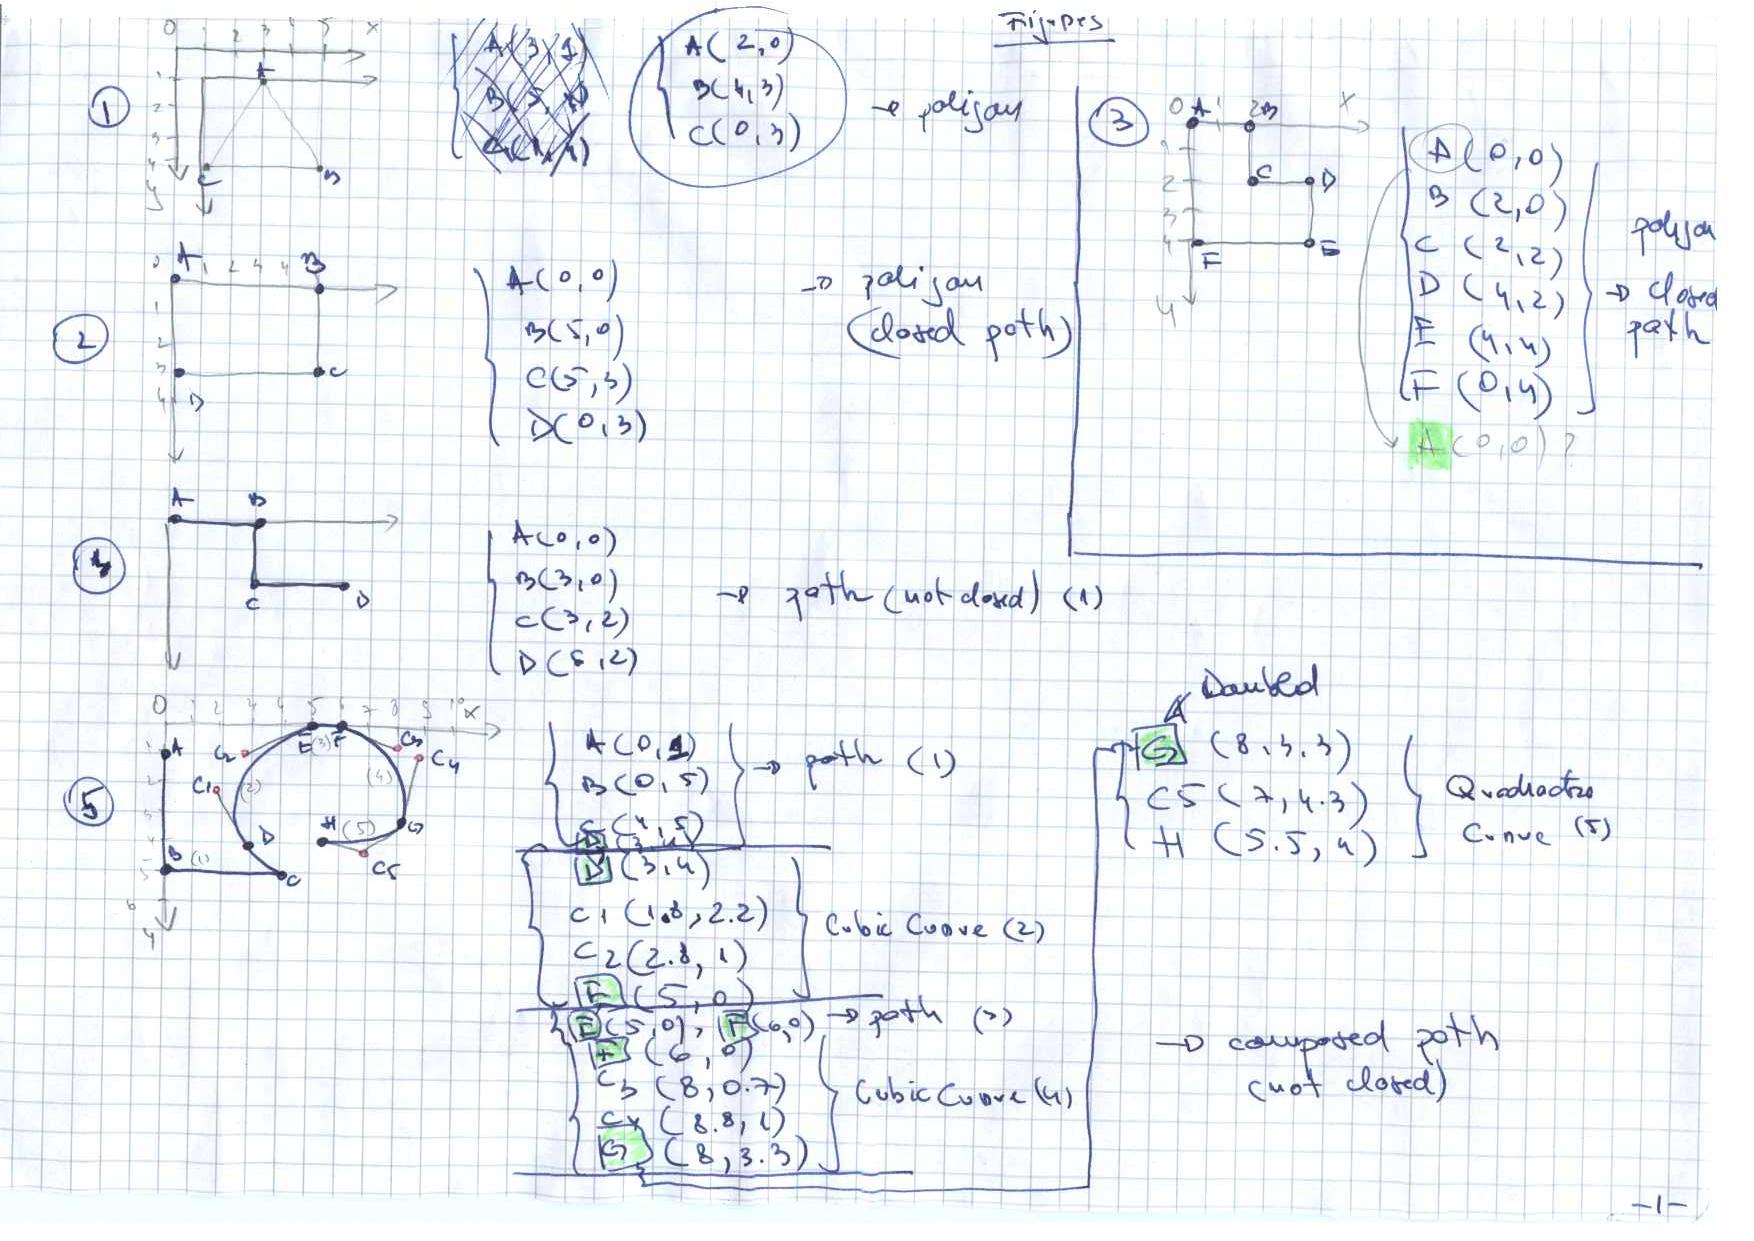 Figures
1
0 1 2 3 4 5 x
1
2
3
4
y
A
B
C
A(2,0)
B(4,3)
C(0,3)
→ poligon
2
0 1 2
A B
1
2
3
4
D C
A(0,0)
B(5,0)
C(5,3)
D(0,3)
→ poligon
(closed path)
3
0 A 1 2B x
1
2 C D
3
4
F E
y
A(0,0)
B(2,0)
C(2,2)
D(4,2)
E(4,4)
F(0,4)
A(0,0)?
poligon
→ closed
path
4
A B
C D
A(0,0)
B(3,0)
C(3,2)
D(5,2)
→ path (not closed) (1)
5
0 1 2 3 4 5 6 7 8 9 10 x
A C2 E (3) F C3 C4
C1 (2) (4)
H (5) G
B (1) D C5
C
6
y
A(0,1)
B(0,5)
C(4,5)
D(3,4)
→ path (1)
D(3,4)
C1(1.8,2.2)
C2(2.8,1)
E(5,0)
Cubic Curve (2)
E(5,0), F(6,0) → path (3)
F(6,0)
C3(8,0.7)
C4(8.8,1)
G(8,3.3)
Cubic Curve (4)
Doubled
G(8,3.3)
C5(7,4.3)
H(5.5,4)
Quadratic
Curve (5)
→ composed path
(not closed)
-1-